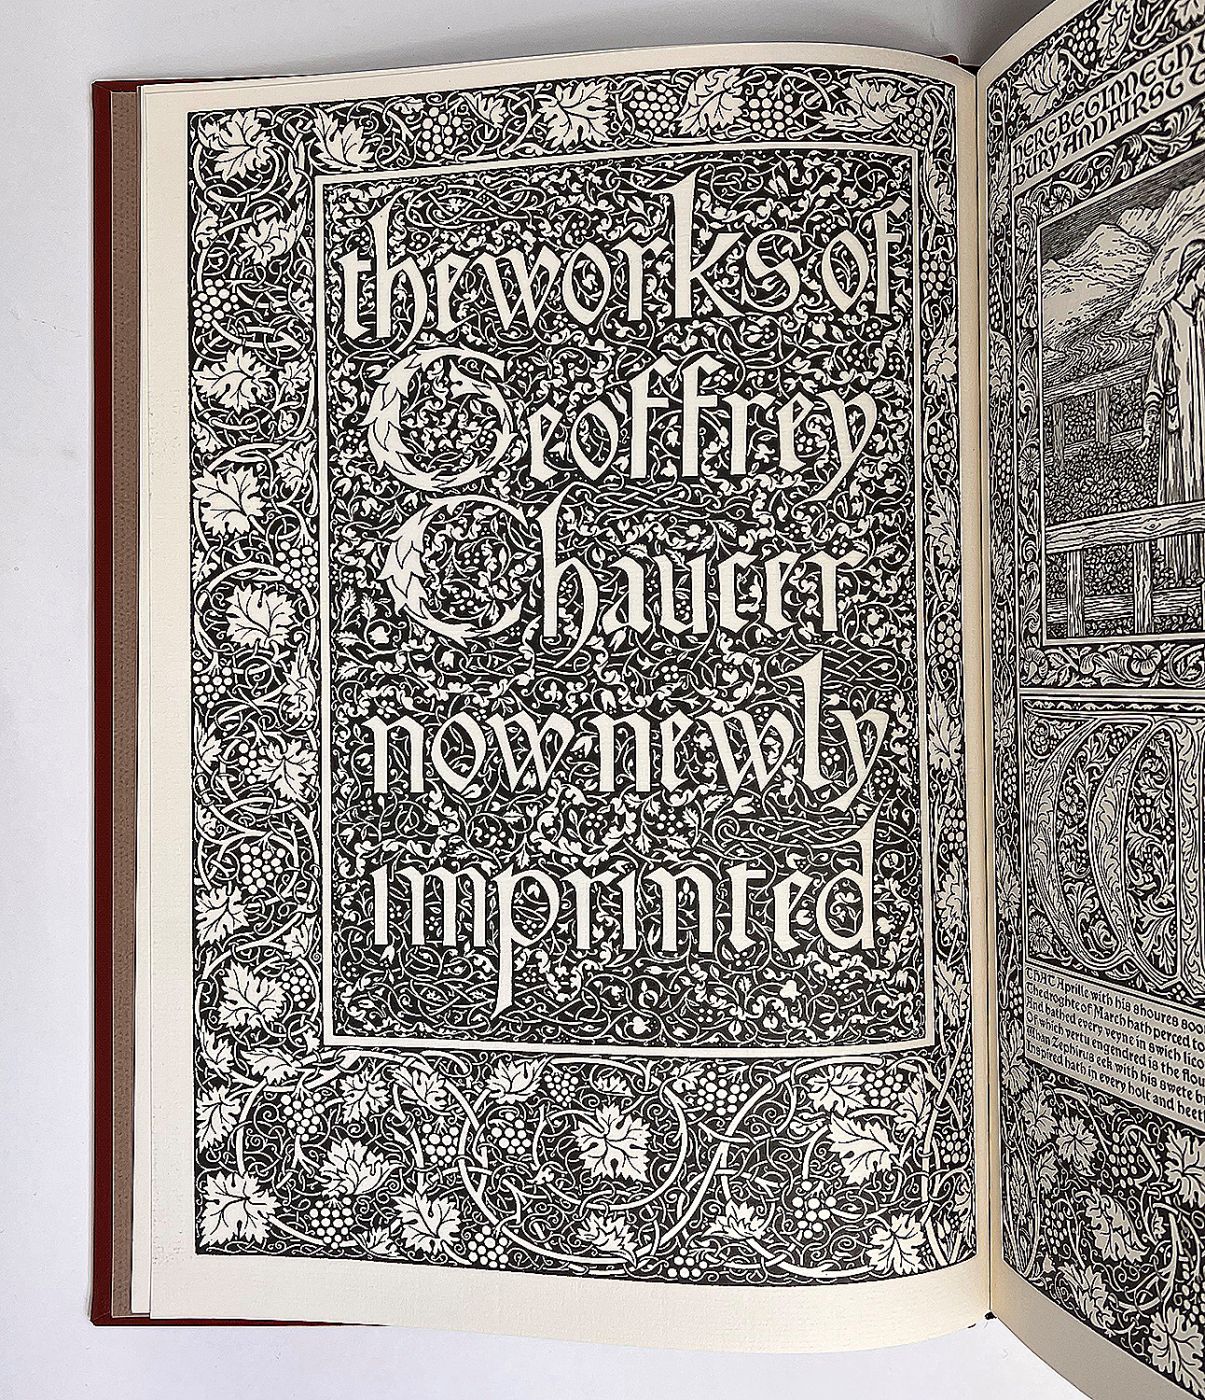 the works of
Geoffrey
Chaucer
now newly
imprinted
HERE BEGINNETH
BURY AND FIRST
W
THAT Aprille with his shoures
The droghte of March hath perced
And bathed every veyne in swich
Of which vertu engendred is the
Whan Zephirus eek with his swete
Inspired hath in every holt and